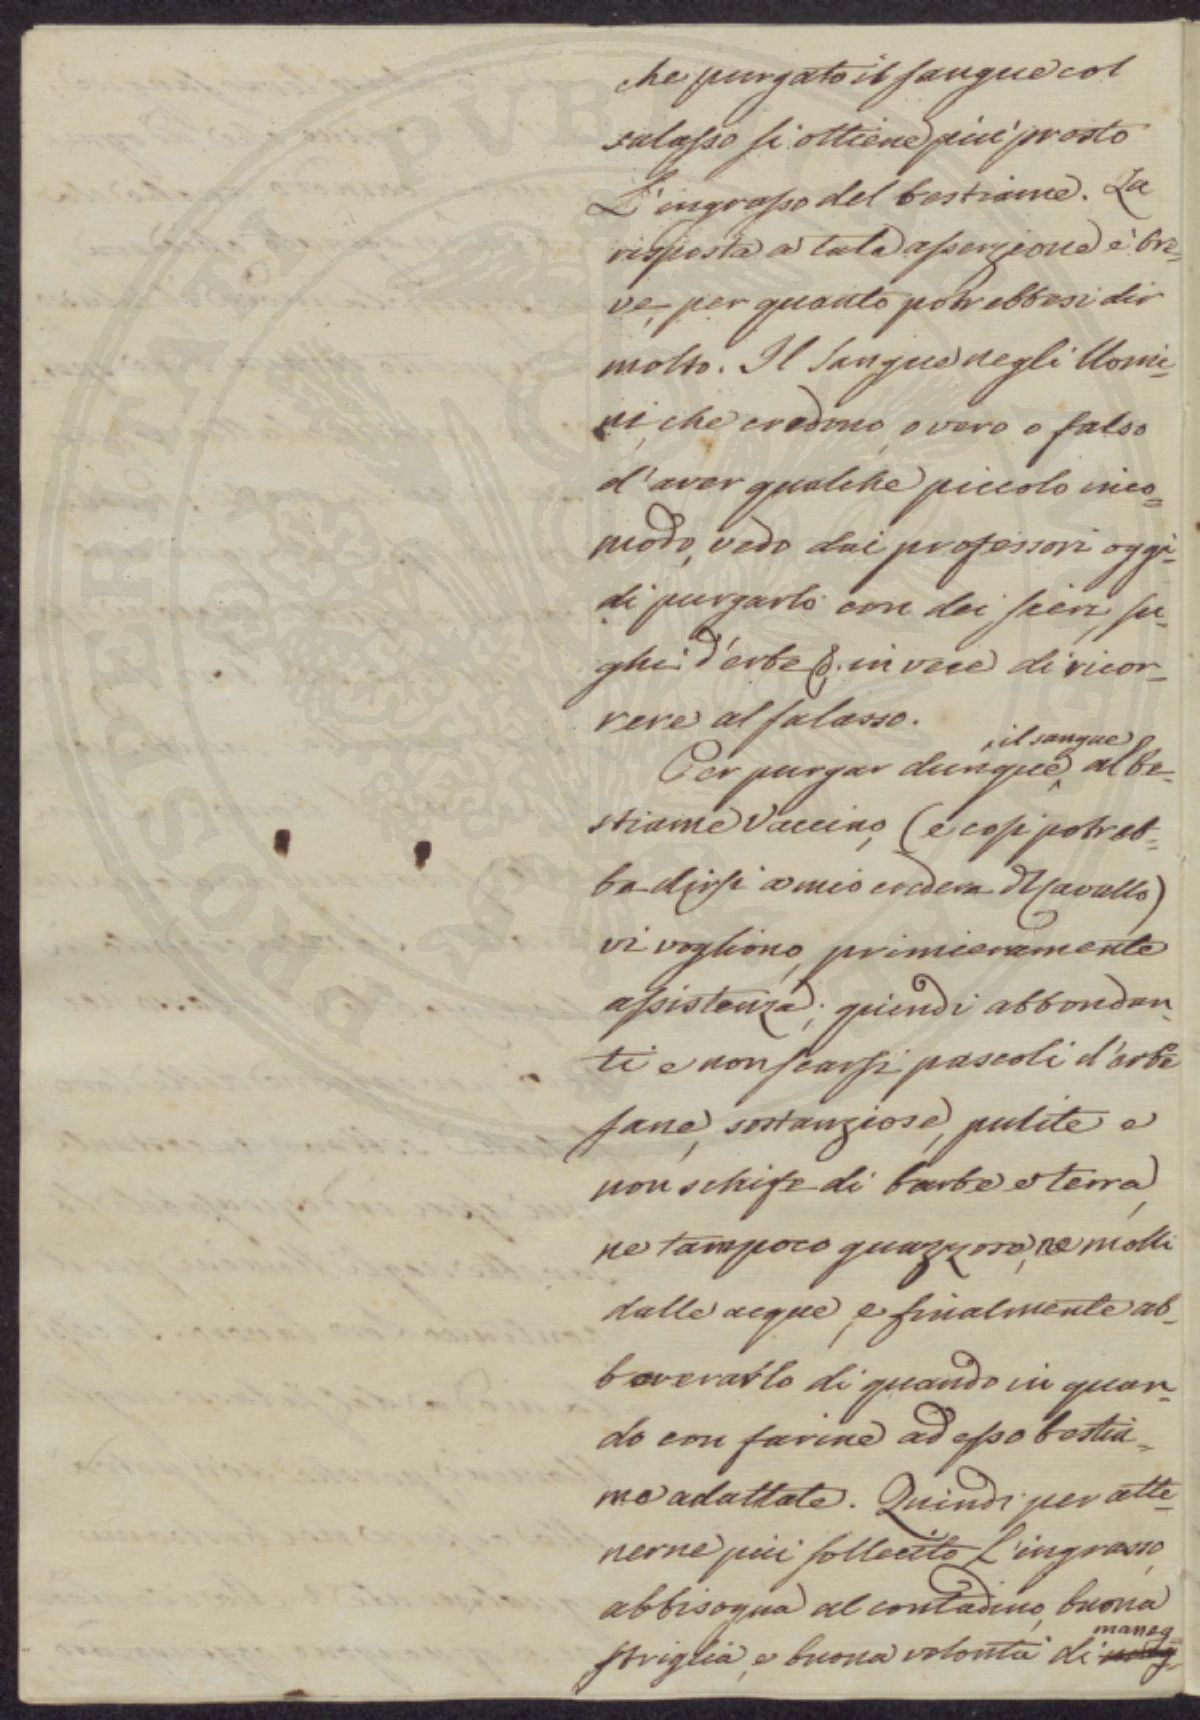 che purgato il sangue col
salasso si ottiene più presto
L'ingrasso del bestiame. La
risposta a tale asserzione è bre-
ve, per quanto potrebbesi dir
molto. Il Sangue negli Uomi-
ni, che credono, o vero o falso
d'aver qualche piccolo inco-
modo, vedo dai professori oggi-
di purgarlo con dei sieri, su-
ghi d'erbe &. in vece di ricor-
rere al salasso.
Per purgar dunque, il sangue al be-
stiame Vaccino, (e così potreb-
be dirsi a mio credere del Cavallo)
vi vogliono, primieramente
assistenza; quindi abbondan-
ti e non scarsi pascoli d'erbe
sane, sostanziose, pulite e
non schife di barbe e terra,
ne tampoco guazzose, ne molli
dalle acque, e finalmente ab-
beverarlo di quando in quan-
do con farine ad esso bestia-
me adattate. Quindi per otte-
nerne più sollecito L'ingrasso,
abbisogna al contadino, buona
striglia, e buona volontà di maneg-